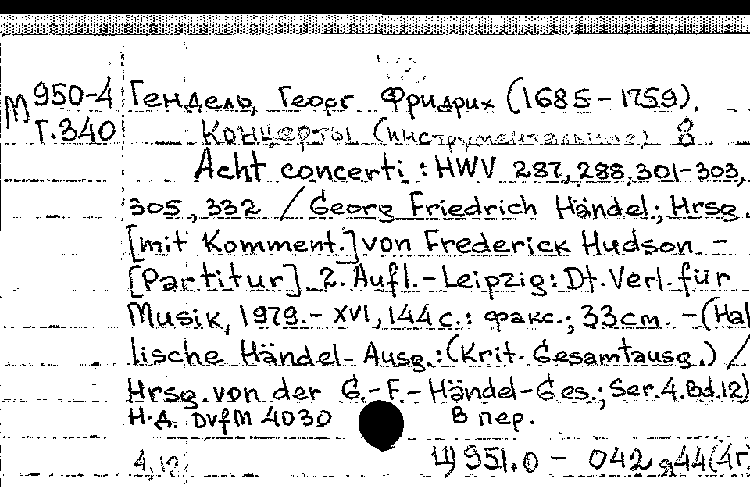 М 950-4 Гендель, Георг Фридрих (1685-1759).
Г.340 Концерты (инструментальные) 8
Acht concerti : HWV 287, 288, 301-303,
305, 332 / Georg Friedrich Händel; Hrsg.
[mit Komment.] von Frederick Hudson. -
[Partitur]. 2. Aufl. - Leipzig: Dt. Verl. für
Musik, 1979. - XVI, 144 с.: факс.; 33 cm. - (Hal
lische Händel-Ausg.: (Krit. Gesamtausg.) /
Hrsg. von der G.-F.-Händel-Ges.; Ser.4.Bd.12)
Н.д. DVfM 4030 В пер.
Щ951.0 - 042 я44(4Г